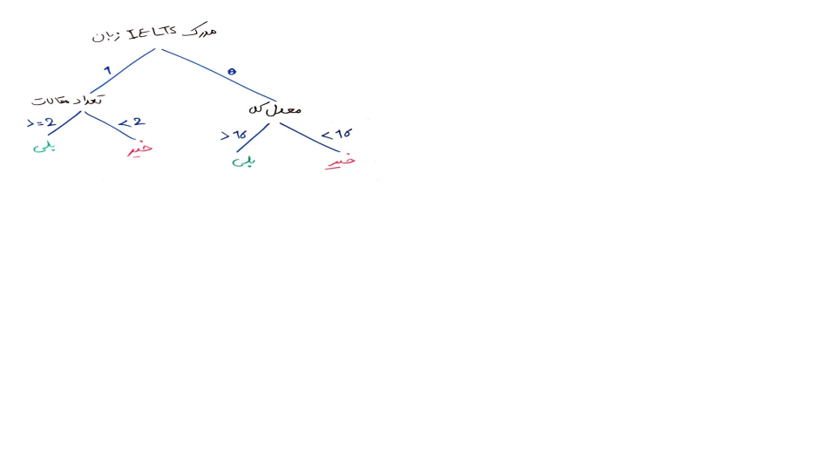 مدرک IELTS زبان
1 0
تعداد مقالات
معدل کل
>=2 <2
>16 <16
بلی خیر
بلی خیر